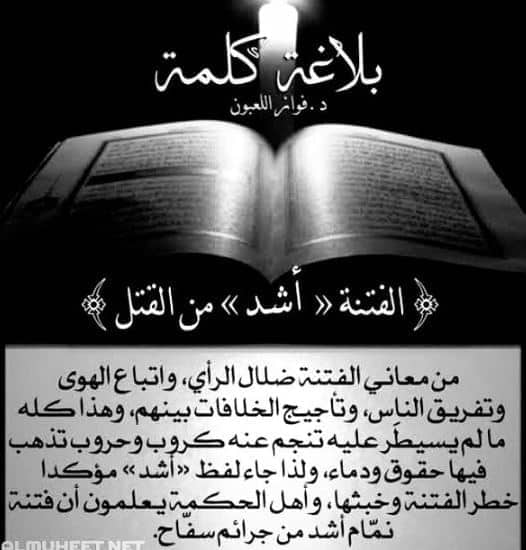 بلاغة كلمة
د. فواز اللعبون
﴿ الفتنة « أشد » من القتل ﴾
من معاني الفتنة ضلال الرأي، واتباع الهوى
وتفريق الناس، وتأجيج الخلافات بينهم، وهذا كله
ما لم يسيطَر عليه تنجم عنه كروب وحروب تذهب
فيها حقوق ودماء، ولذا جاء لفظ «أشد» مؤكدا
خطر الفتنة وخبثها، وأهل الحكمة يعلمون أن فتنة
نمّام أشد من جرائم سفّاح.
ALMUHEET.NET